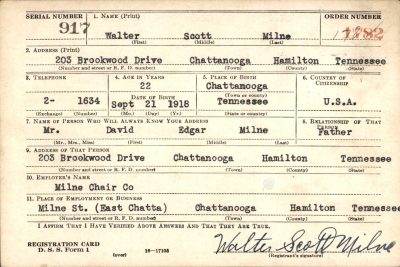 SERIAL NUMBER 1. NAME (Print) ORDER NUMBER
917 Walter Scott Milne
(First) (Middle) (Last)
2. ADDRESS (Print)
203 Brookwood Drive Chattanooga Hamilton Tennessee
(Number and street or R. F. D. number) (Town) (County) (State)
3. TELEPHONE 4. AGE IN YEARS 5. PLACE OF BIRTH 6. COUNTRY OF CITIZENSHIP
22 Chattanooga
DATE OF BIRTH (Town or county)
2- 1634 Sept 21 1918 Tennessee U.S.A.
(Exchange) (Number) (Mo.) (Day) (Yr.) (State or country)
7. NAME OF PERSON WHO WILL ALWAYS KNOW YOUR ADDRESS 8. RELATIONSHIP OF THAT PERSON
Mr. David Edgar Milne Father
(Mr., Mrs., Miss) (First) (Middle) (Last)
9. ADDRESS OF THAT PERSON
203 Brookwood Drive Chattanooga Hamilton Tennessee
(Number and street or R. F. D. number) (Town) (County) (State)
10. EMPLOYER'S NAME
Milne Chair Co
11. PLACE OF EMPLOYMENT OR BUSINESS
Milne St. (East Chatta) Chattanooga Hamilton Tennessee
(Number and street or R. F. D. number) (Town) (County) (State)
I AFFIRM THAT I HAVE VERIFIED ABOVE ANSWERS AND THAT THEY ARE TRUE.
REGISTRATION CARD
D. S. S. Form 1 (over) 16-17105
Walter Scott Milne
(Registrant's signature)